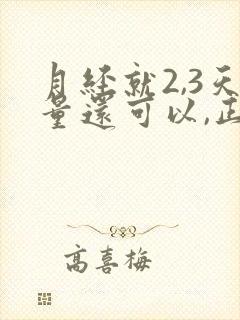 月經就2,3天
量還可以,正
高喜梅